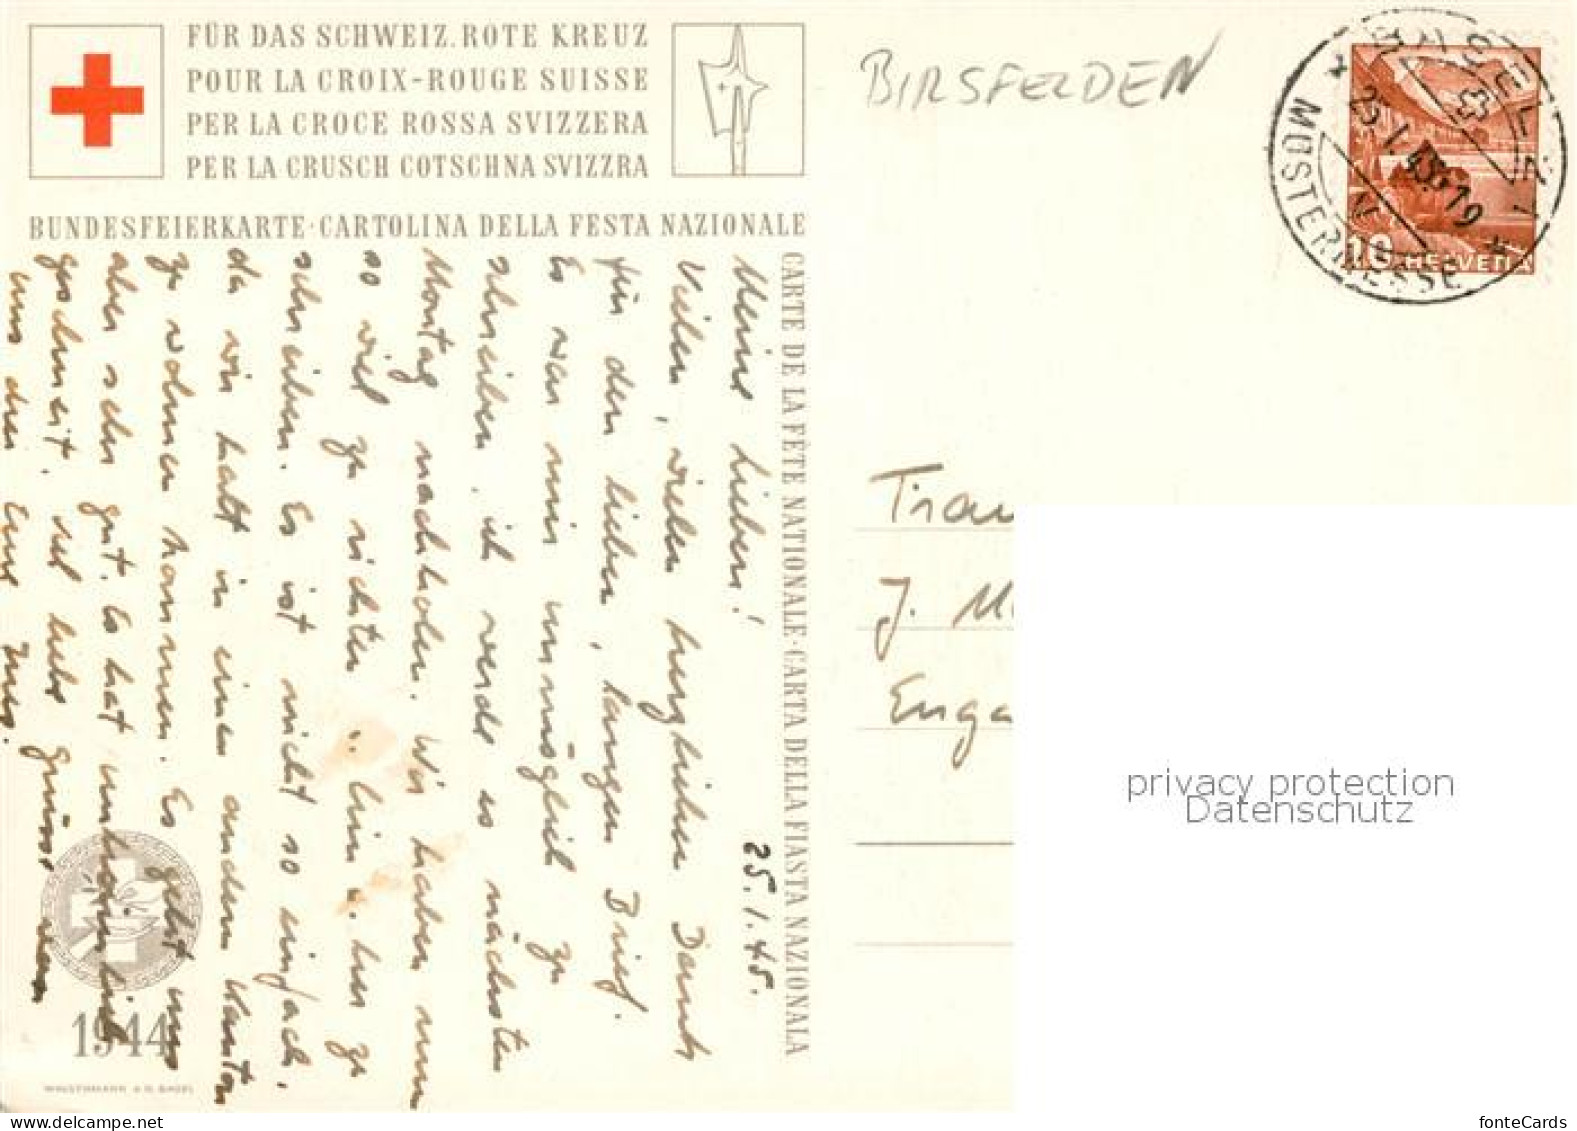 FÜR DAS SCHWEIZ. ROTE KREUZ
POUR LA CROIX-ROUGE SUISSE
PER LA CROCE ROSSA SVIZZERA
PER LA CRUSCH COTSCHNA SVIZZRA
BUNDESFEIERKARTE·CARTOLINA DELLA FESTA NAZIONALE
CARTE DE LA FÊTE NATIONALE·CARTA DELLA FIASTA NAZIONALA
25.1.45.
Meine Lieben!
Vielen, vielen herzlichen Dank
für den lieben, langen Brief.
Es war mir unmöglich zu
schreiben, ich werde es nächsten
Montag nachholen. Wir haben nun
so viel zu richten u. hin u. her zu
schreiben. Es ist nicht so einfach,
da wir halt in einen andern Kanton
zu wohnen kommen. Es geht uns
aber sehr gut. Es hat unheimlich
geschneit. Viel liebe Grüsse von
uns drei Eure
1944
BIRSFELDEN
BASEL 1
25.I.45-19
MUSTERMESSE
10 HELVETIA
Frau
J. M
Enga
privacy protection
Datenschutz
www.ansichtskartenversand.com
fonteCards